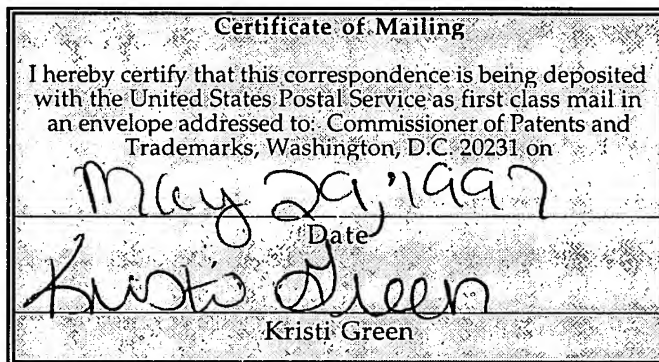 Certificate of Mailing
I hereby certify that this correspondence is being deposited
with the United States Postal Service as first class mail in
an envelope addressed to: Commissioner of Patents and
Trademarks, Washington, D.C. 20231 on
May 29, 1997
Date
Kristi Green
Kristi Green